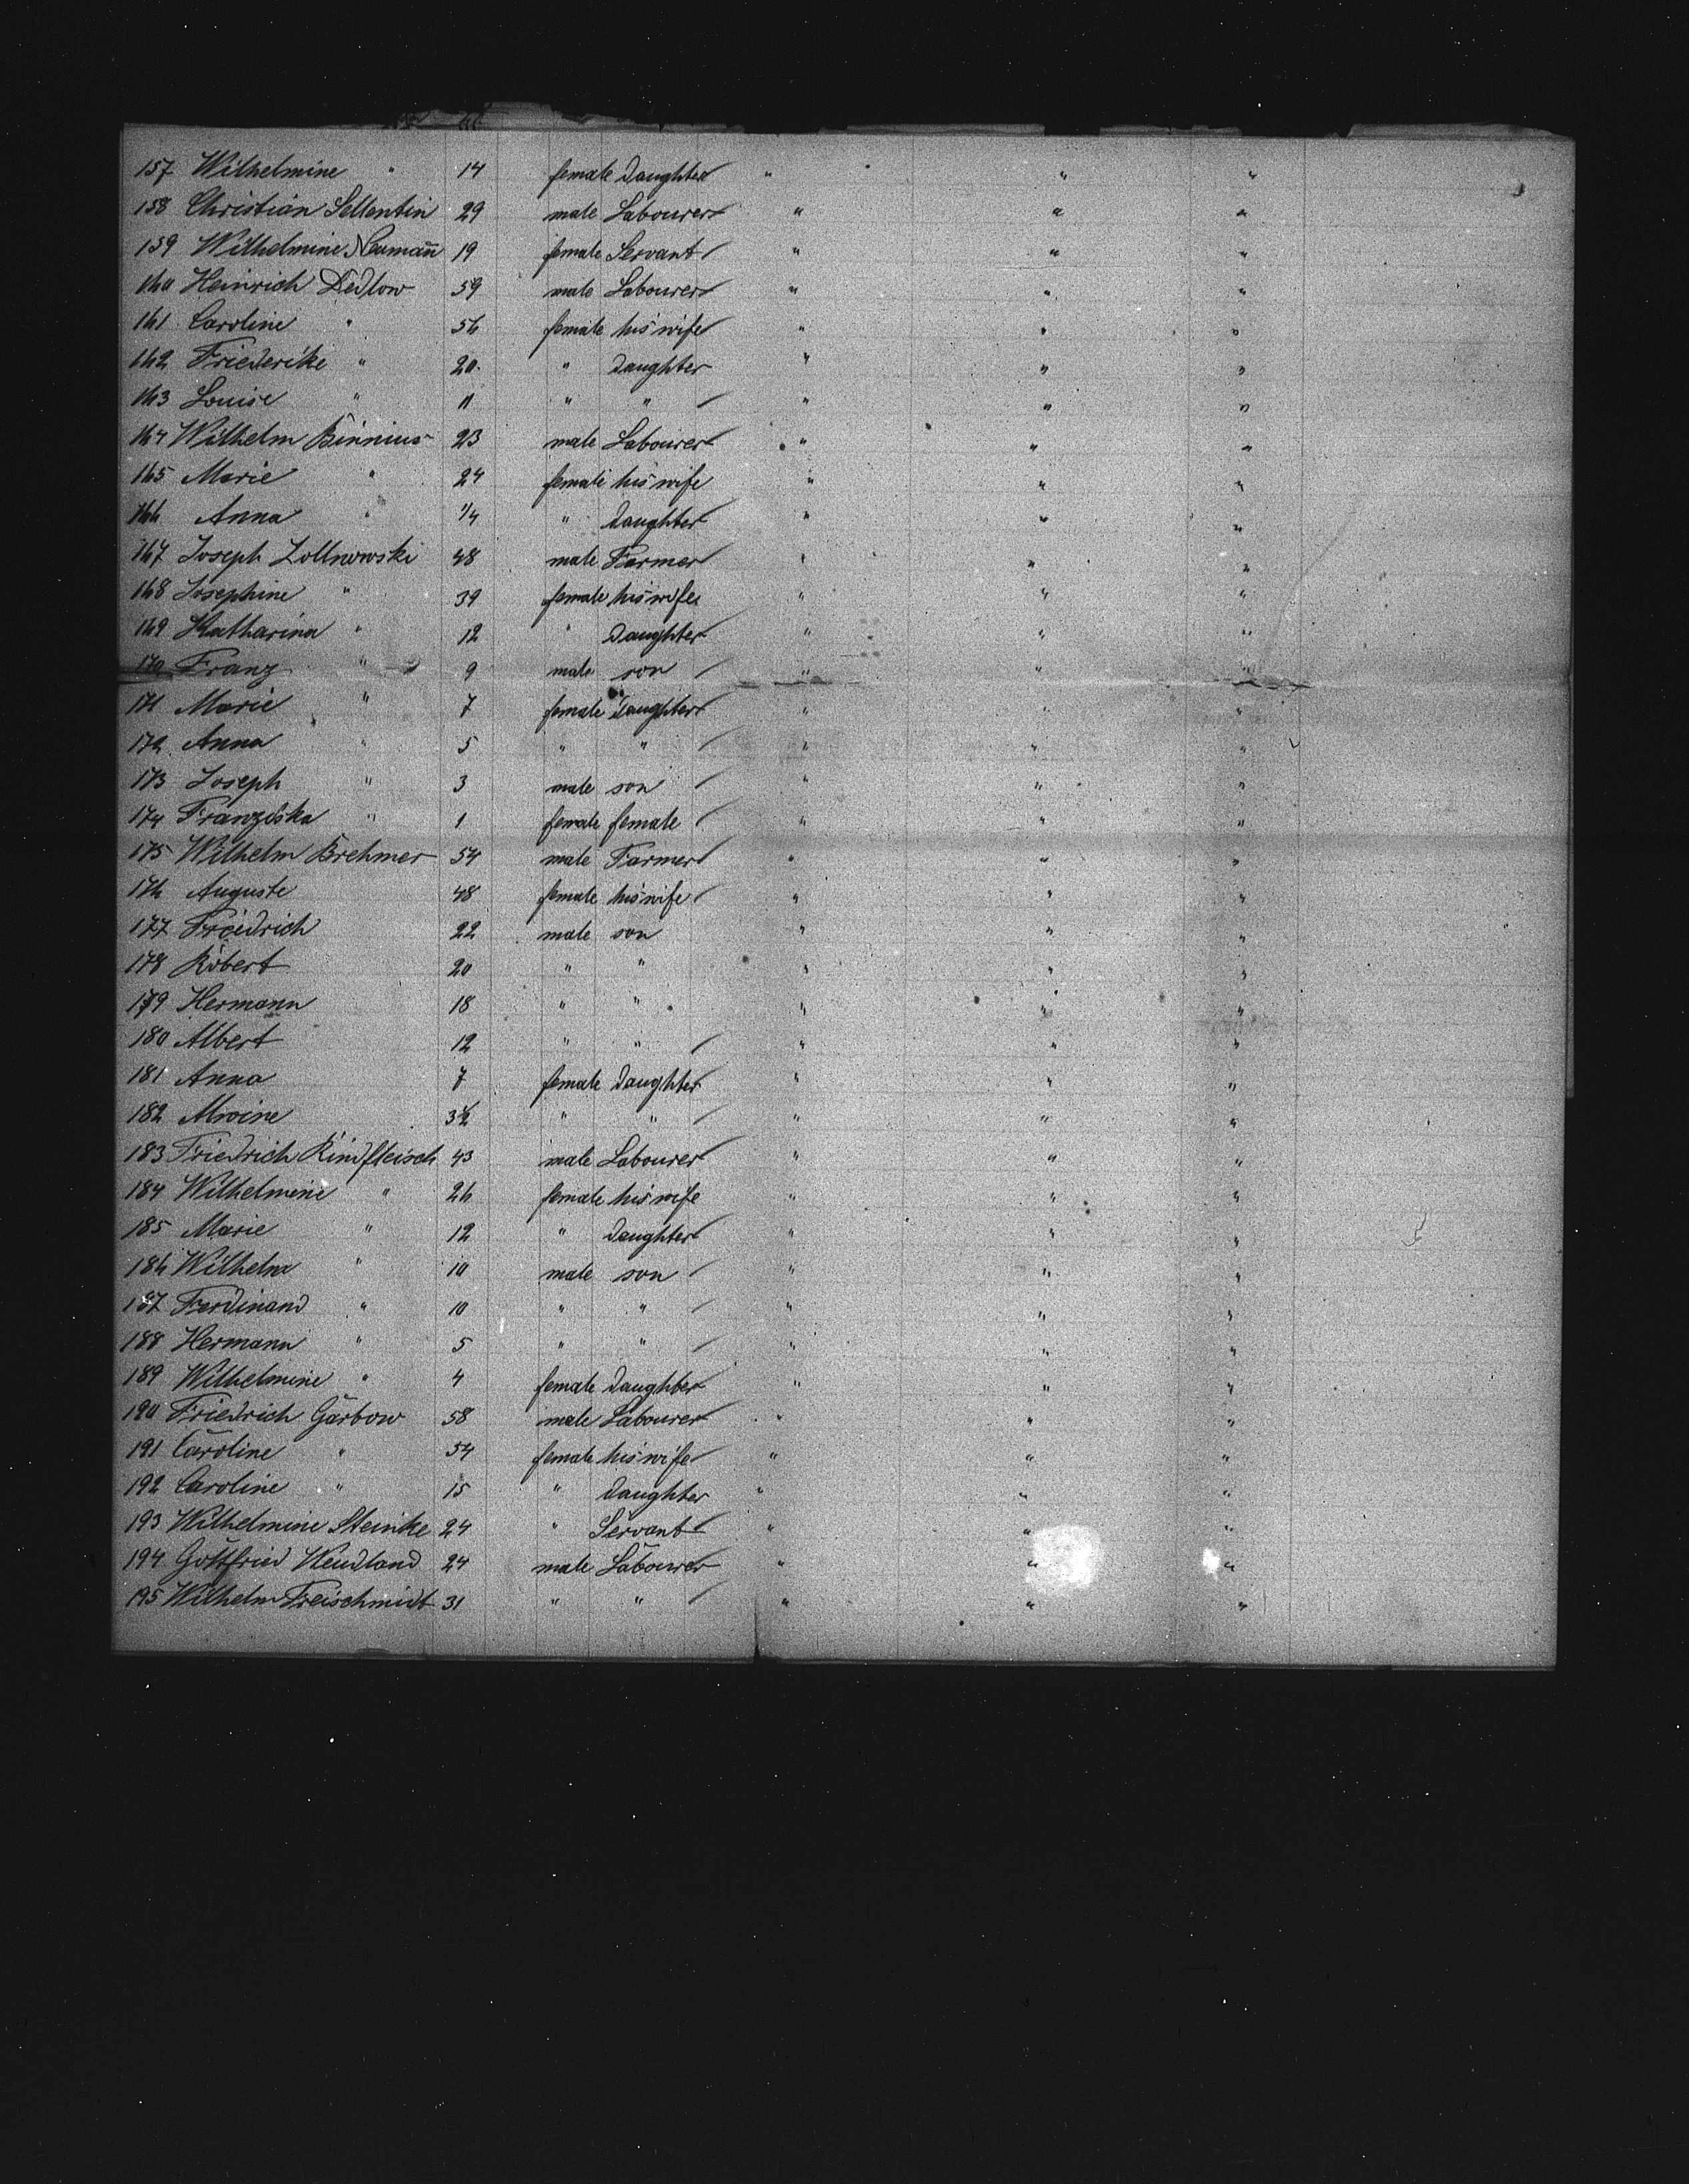 157 Wilhelmine " 14 female Daughter " " "
158 Christian Sellentin 29 male Labourer " " "
159 Wilhelmine Neumañ 19 female Servant " " "
160 Heinrich Dedlow 59 male Labourer " " "
161 Caroline " 56 female his wife " " "
162 Friederike " 20 " Daughter " " "
163 Louise " 11 " " " " "
164 Wilhelm Binnius 23 male Labourer " " "
165 Marie " 24 female his wife " " "
166 Anna " 1/4 " Daughter " " "
167 Joseph Zollnowski 48 male Farmer " " "
168 Josephine " 39 female his wife " " "
169 Katharina " 12 " Daughter " " "
170 Franz " 9 male son " " "
171 Marie " 7 female Daughter " " "
172 Anna " 5 " " " " "
173 Joseph " 3 male son " " "
174 Franziska " 1 female female " " "
175 Wilhelm Brehmer 54 male Farmer " " "
176 Auguste 48 female his wife " " "
177 Friedrich 22 male son " " "
178 Robert 20 " " " " "
179 Hermann 18 " " " " "
180 Albert 12 " " " " "
181 Anna 7 female Daughter " " "
182 Alwine " " " " "
183 Friedrich Rindfleisch 43 male Labourer " " "
184 Wilhelmine " 26 female his wife " " "
185 Marie " 12 " Daughter " " "
186 Wilhelm " 10 male son " " "
187 Ferdinand " 10 " " " " "
188 Hermann " 5 " " " " "
189 Wilhelmine " 4 female Daughter " " "
190 Friedrich Garbow 58 male Labourer " " "
191 Caroline " 54 female his wife " " "
192 Caroline " 15 " Daughter " " "
193 Wilhelmine Steinke 24 " Servant " " "
194 Gottfried Wendland 24 male Labourer " " "
195 Wilhelm Freischmidt 31 " " " " "